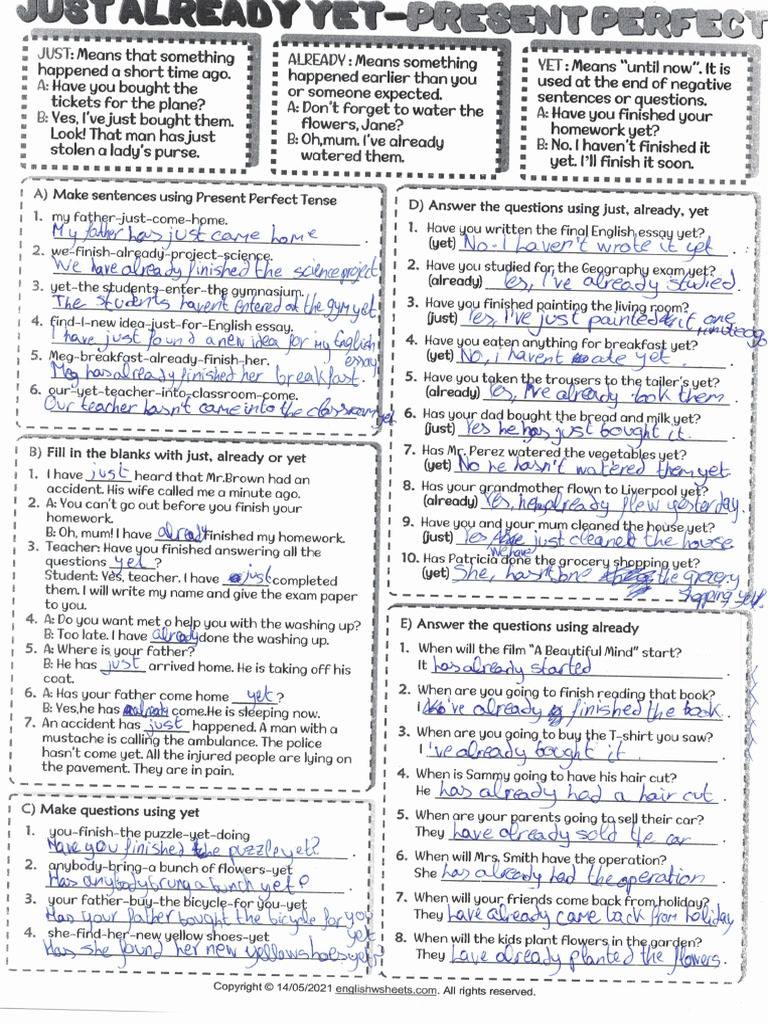 JUST ALREADY YET-PRESENT PERFECT
JUST: Means that something
happened a short time ago.
A: Have you bought the
tickets for the plane?
B: Yes, I've just bought them.
Look! That man has just
stolen a lady's purse.
ALREADY : Means something
happened earlier than you
or someone expected.
A: Don't forget to water the
flowers, Jane?
B: Oh,mum. I've already
watered them.
YET : Means "until now". It is
used at the end of negative
sentences or questions.
A: Have you finished your
homework yet?
B: No. I haven't finished it
yet. I'll finish it soon.
A) Make sentences using Present Perfect Tense
1. my father-just-come-home.
My father has just came home.
2. we-finish-already-project-science.
We have already finished the science project
3. yet-the students-enter-the gymnasium.
The students havent entered at the gym yet
4. find-I-new idea-just-for-English essay.
I have just found a new idea for my English
essay
5. Meg-breakfast-already-finish-her.
Meg has already finished her breakfast.
6. our-yet-teacher-into-classroom-come.
Our teacher hasn't came into the classroom yet
B) Fill in the blanks with just, already or yet
1. I have just heard that Mr.Brown had an
accident. His wife called me a minute ago.
2. A: You can't go out before you finish your
homework.
B: Oh, mum! I have already finished my homework.
3. Teacher: Have you finished answering all the
questions yet ?
Student: Yes, teacher. I have just completed
them. I will write my name and give the exam paper
to you.
4. A: Do you want met o help you with the washing up?
B: Too late. I have already done the washing up.
5. A: Where is your father?
B: He has just arrived home. He is taking off his
coat.
6. A: Has your father come home yet ?
B: Yes,he has already come.He is sleeping now.
7. An accident has just happened. A man with a
mustache is calling the ambulance. The police
hasn't come yet. All the injured people are lying on
the pavement. They are in pain.
C) Make questions using yet
1. you-finish-the puzzle-yet-doing
Have you finished the puzzle yet?
2. anybody-bring-a bunch of flowers-yet
Has anybody brung a bunch yet?
3. your father-buy-the bicycle-for you-yet
Has your father bought the bicycle for you
yet
4. she-find-her-new yellow shoes-yet
Has she found her new yellow shoes yet?
D) Answer the questions using just, already, yet
1. Have you written the final English essay yet?
(yet) No. I haven't wrote it yet
2. Have you studied for the Geography exam yet?
(already) Yes, I've already studied.
3. Have you finished painting the living room?
(just) Yes, I've just painted it one
minute ago
4. Have you eaten anything for breakfast yet?
(yet) No, i havent ate yet.
5. Have you taken the trousers to the tailer's yet?
(already) Yes, I've already took them
6. Has your dad bought the bread and milk yet?
(just) Yes he has just bought it.
7. Has Mr. Perez watered the vegetables yet?
(yet) No he hasn't watered them yet
8. Has your grandmother flown to Liverpool yet?
(already) Yes, he already flew yesterday.
9. Have you and your mum cleaned the house yet?
(just) Yes we have just cleaned the house
10. Has Patricia done the grocery shopping yet?
(yet) She, hasn't done the grocery
shopping yet.
E) Answer the questions using already
1. When will the film "A Beautiful Mind" start?
It has already started
2. When are you going to finish reading that book?
I 've already finished the book.
3. When are you going to buy the T-shirt you saw?
I 've already bought it.
4. When is Sammy going to have his hair cut?
He has already had a hair cut.
5. When are your parents going to sell their car?
They have already sold the car
6. When will Mrs. Smith have the operation?
She has already had the operation
7. When will your friends come back from holiday?
They have already came back from holiday
8. When will the kids plant flowers in the garden?
They have already planted the flowers.
Copyright © 14/05/2021 englishwsheets.com. All rights reserved.